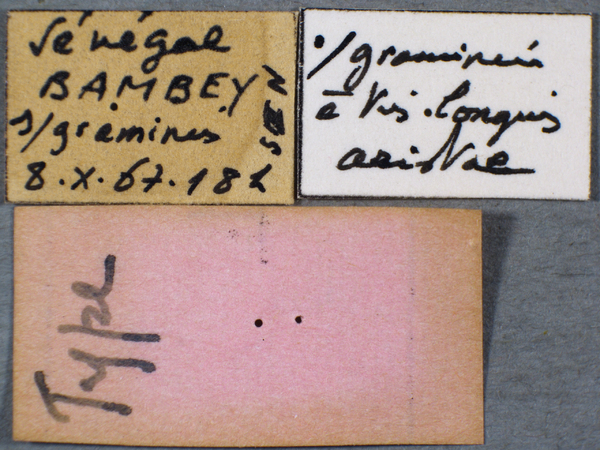 Sénégal
BAMBEY
s/gramines
8.X.67.181
s/gramineis
à très longues
aristae
Type